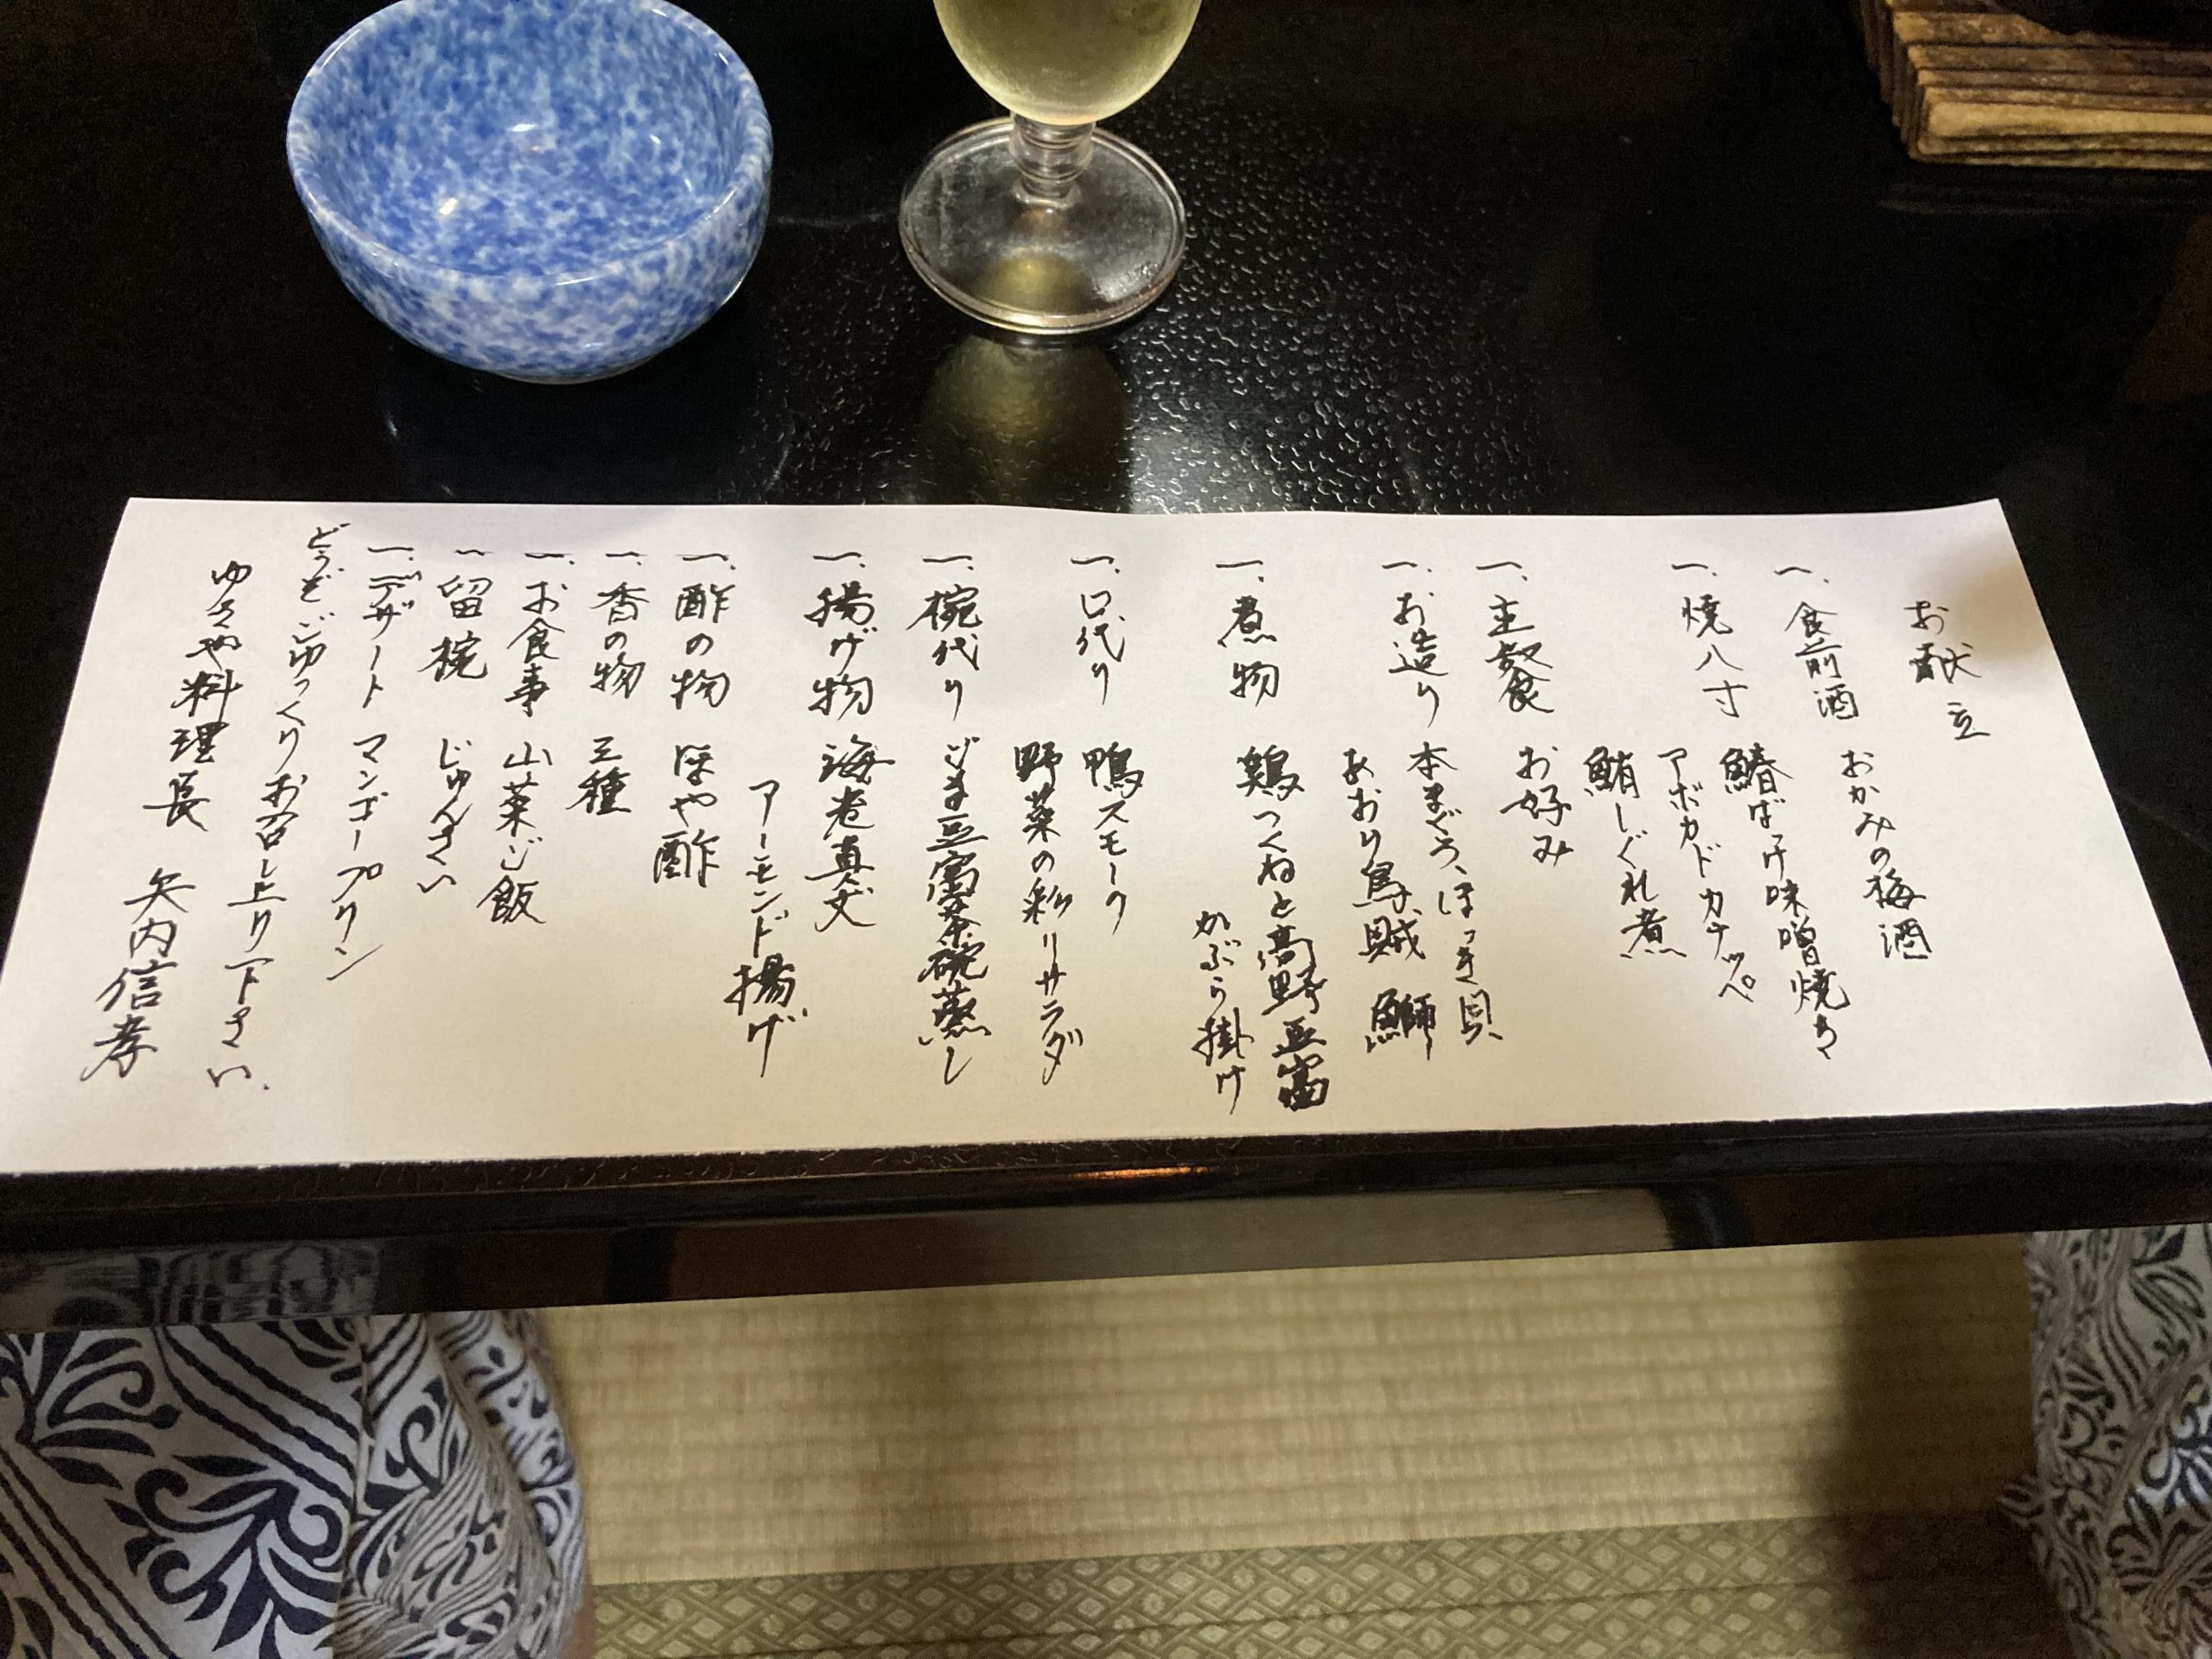 お献立
一、食前酒 おかみの梅酒
一、焼八寸 鰆ばっけ味噌焼き
アボカドカナッペ
鮪しぐれ煮
一、主餐 お好み
一、お造り 本まぐろ、ほっき貝、
あおり烏賊 鰤
一、煮物 鶏つくねと高野豆富
かぶら掛け
一、口代り 鴨スモーク
野菜の彩りサラダ
一、椀代り ごま豆富茶碗蒸し
一、揚げ物 海老真丈
アーモンド揚げ
一、酢の物 ほや酢
一、香の物 三種
一、お食事 山菜ご飯
一、留椀 じゅんさい
一、デザート マンゴープリン
どうぞごゆっくりお召し上り下さい。
ゆさや料理長 矢内信孝